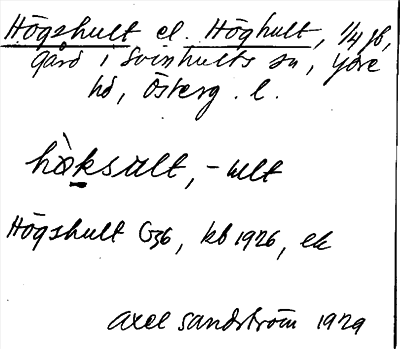 Högshult el. Höghult, 1/4 jb,
gård i Svinhults sn, Ydre
hd, Österg. l.
hò̀ksult, -ult
Högshult G36, kb 1926, ek
Axel Sandström 1929